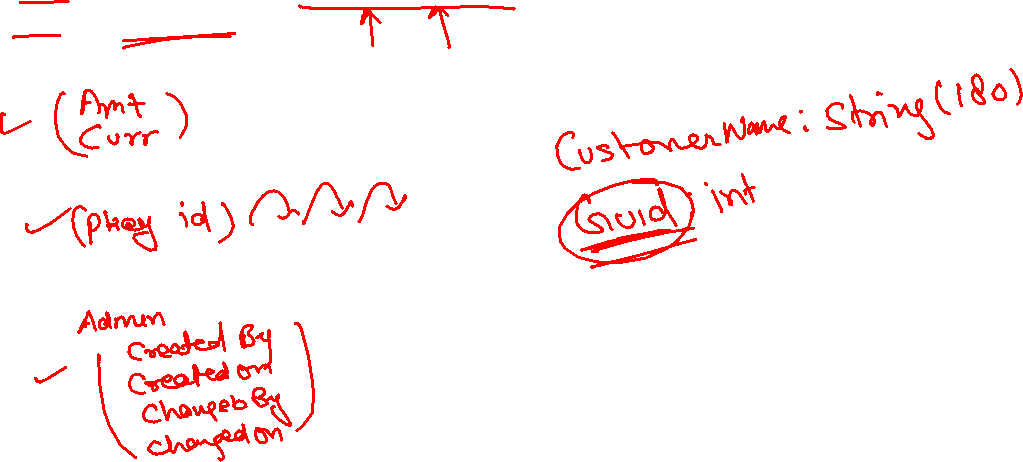 (Amt
Curr)
(pkey id)
Admin
Created By
Created on
Changed By
changed on
CustomerName: String(180)
Guid int